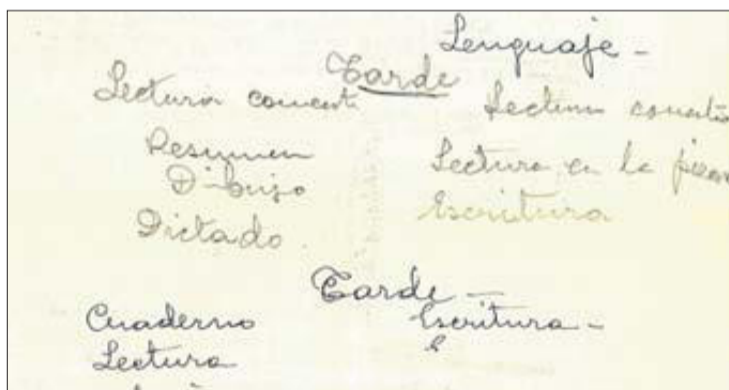 Lenguaje -
Tarde
Lectura coment
Lectura
Resumen
Lectura en la
Dibujo
Escritura
Dictado.
Tarde -
Cuaderno
Escritura -
Lectura